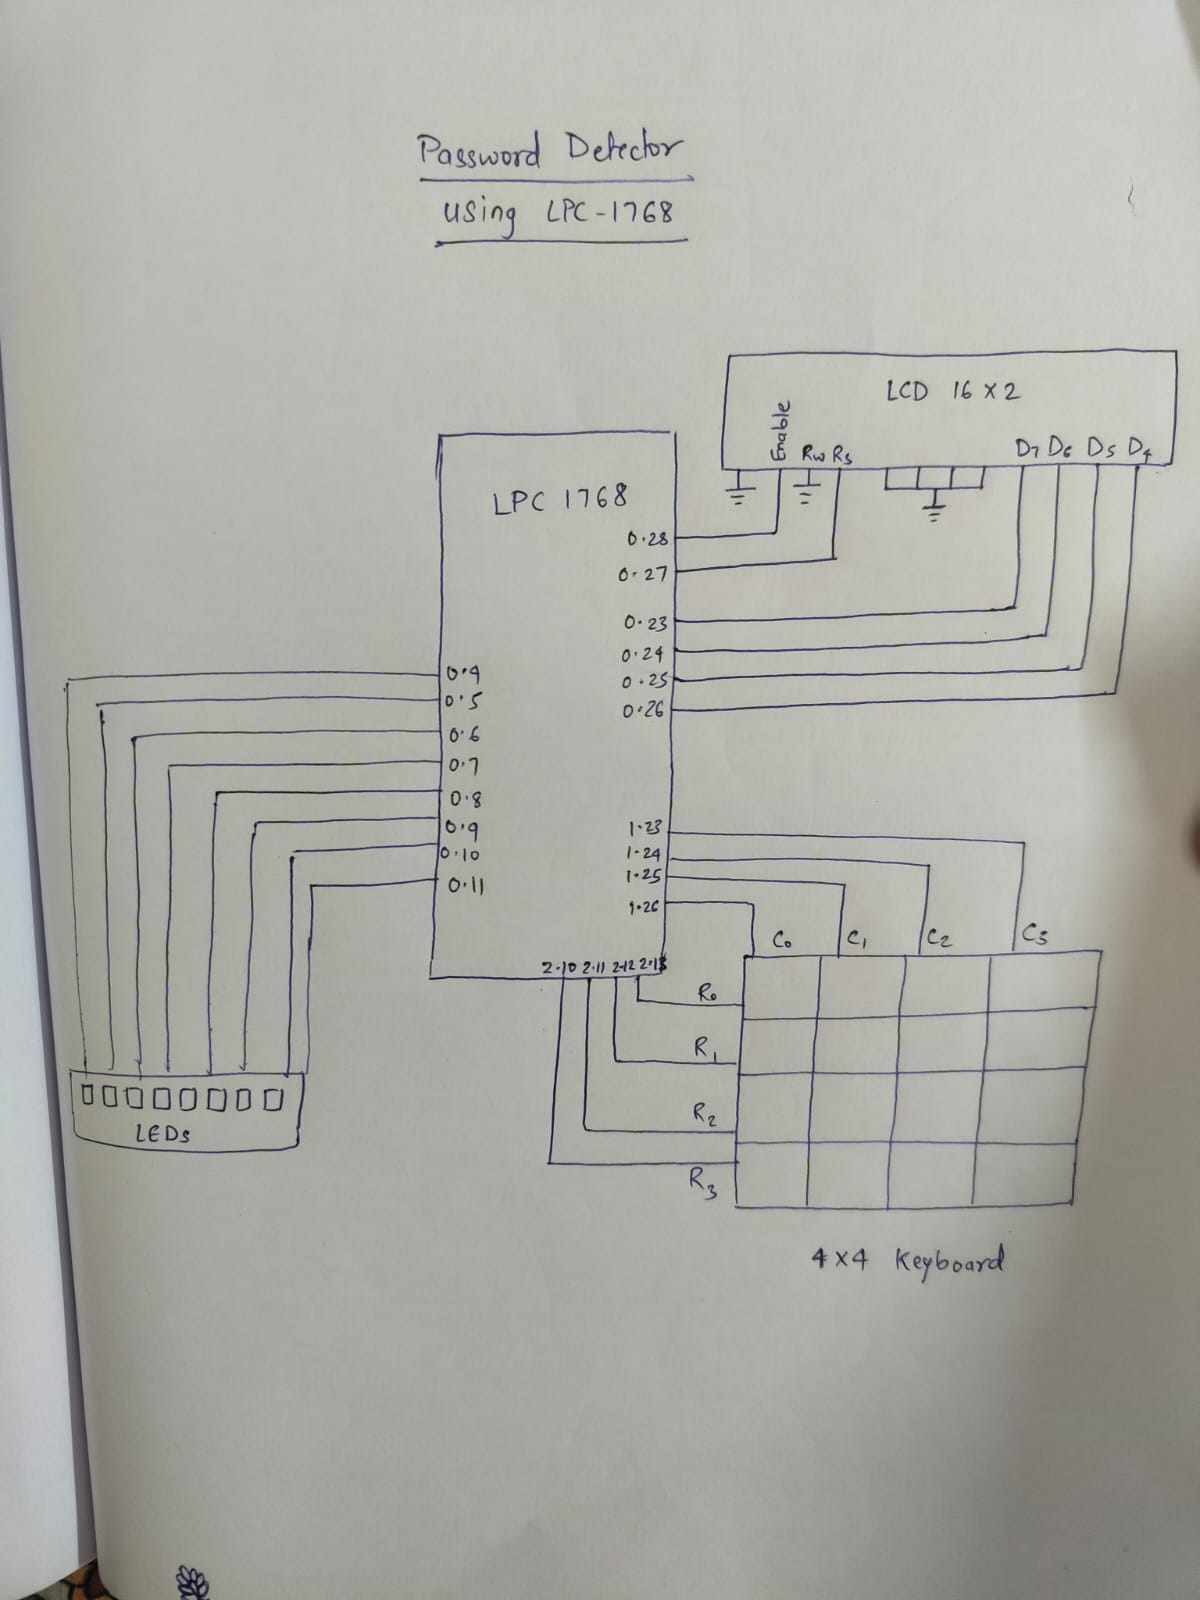 Password Detector
using LPC-1768
LCD 16 X 2
Enable
Rw Rs
D7 D6 D5 D4
LPC 1768
0.28
0.27
0.23
0.24
0.25
0.26
0.4
0.5
0.6
0.7
0.8
0.9
0.10
0.11
1.23
1.24
1.25
1.26
2.10 2.11 2.12 2.13
C0 C1 C2 C3
R0
R1
R2
R3
LEDs
4X4 Keyboard